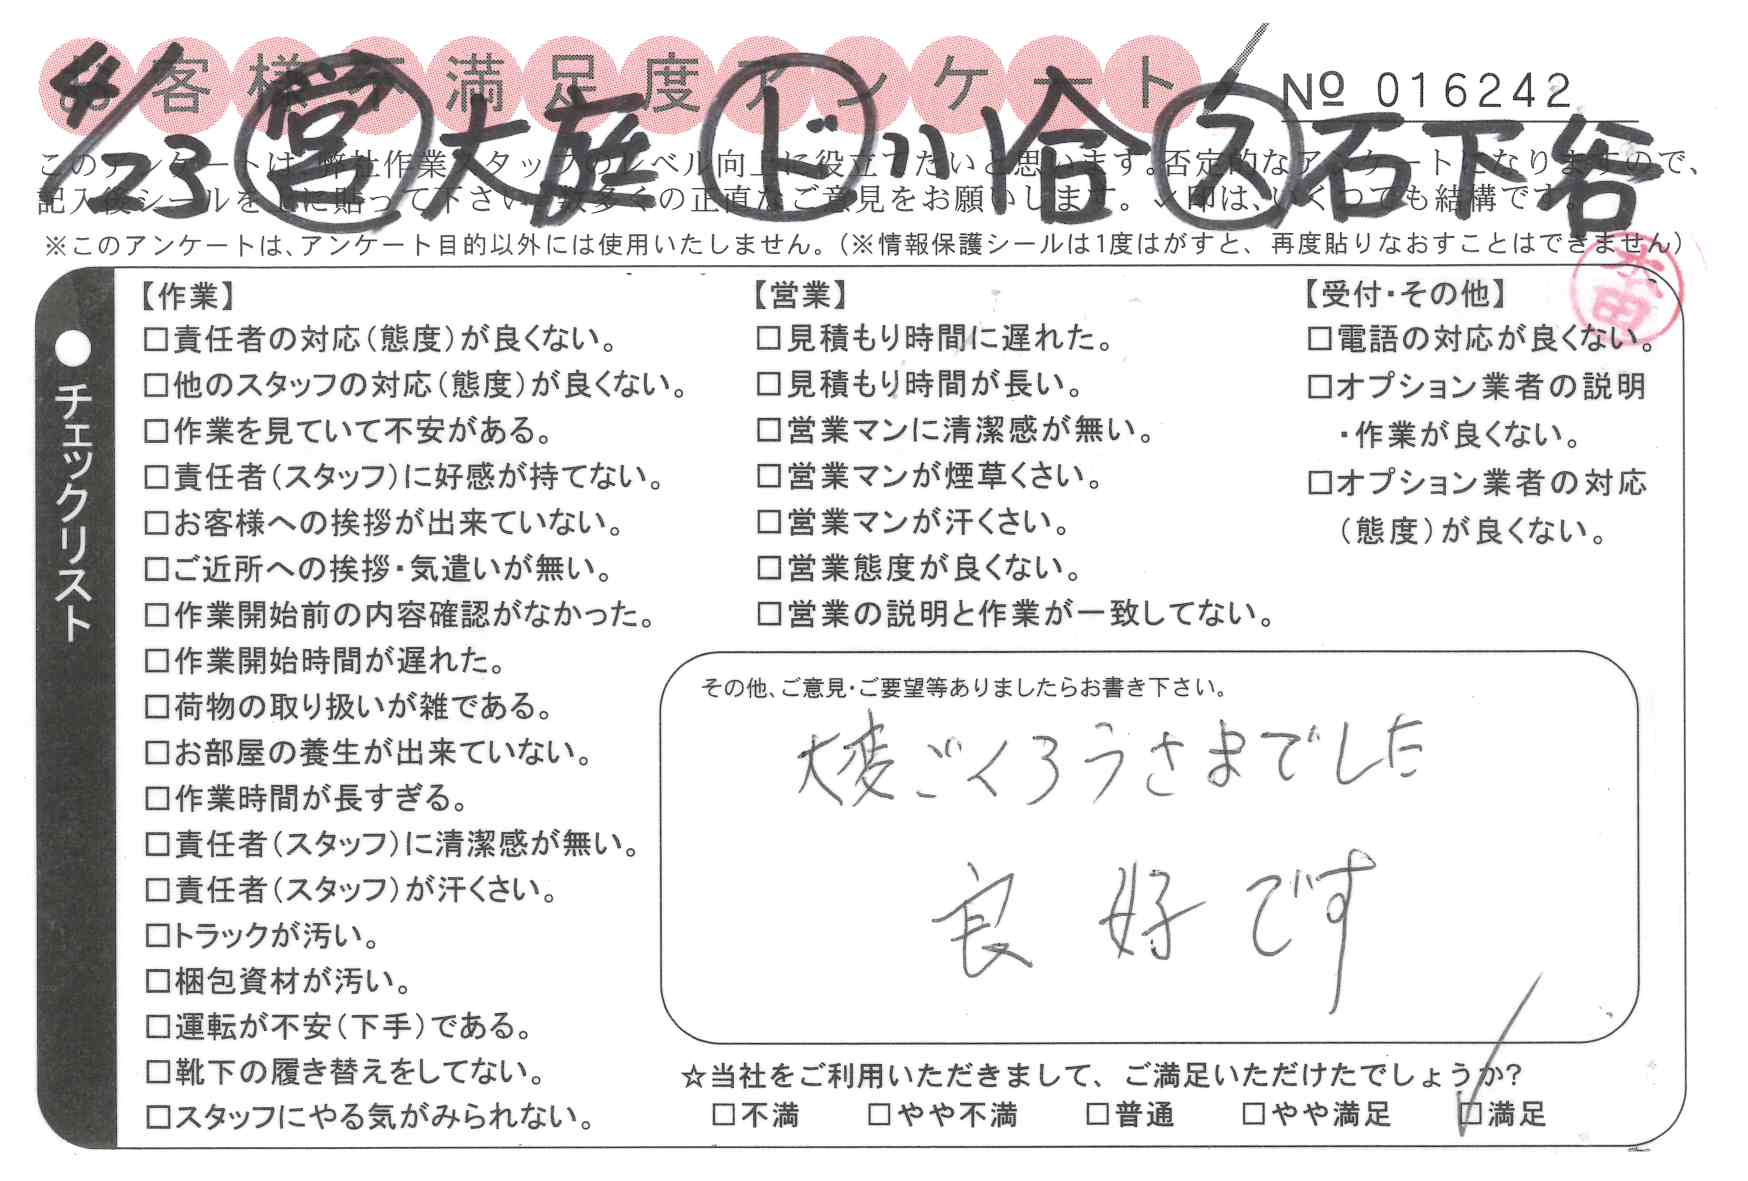 お客様不満足度アンケート
№ 016242
4/23 営 大庭 ド 川合 ス 石下谷
このアンケートは、弊社作業スタッフのレベル向上に役立てたいと思います。否定的なアンケートになりますので、
記入後シールを上に貼って下さい。数多くの正直なご意見をお願いします。✓印は、いくつでも結構です。
※このアンケートは、アンケート目的以外には使用いたしません。（※情報保護シールは1度はがすと、再度貼りなおすことはできません）
●チェックリスト
【作業】
□責任者の対応（態度）が良くない。
□他のスタッフの対応（態度）が良くない。
□作業を見ていて不安がある。
□責任者（スタッフ）に好感が持てない。
□お客様への挨拶が出来ていない。
□ご近所への挨拶・気遣いが無い。
□作業開始前の内容確認がなかった。
□作業開始時間が遅れた。
□荷物の取り扱いが雑である。
□お部屋の養生が出来ていない。
□作業時間が長すぎる。
□責任者（スタッフ）に清潔感が無い。
□責任者（スタッフ）が汗くさい。
□トラックが汚い。
□梱包資材が汚い。
□運転が不安（下手）である。
□靴下の履き替えをしてない。
□スタッフにやる気がみられない。
【営業】
□見積もり時間に遅れた。
□見積もり時間が長い。
□営業マンに清潔感が無い。
□営業マンが煙草くさい。
□営業マンが汗くさい。
□営業態度が良くない。
□営業の説明と作業が一致してない。
【受付・その他】
□電話の対応が良くない。
□オプション業者の説明
・作業が良くない。
□オプション業者の対応
（態度）が良くない。
その他、ご意見・ご要望等ありましたらお書き下さい。
大変ごくろうさまでした
良好です
☆当社をご利用いただきまして、ご満足いただけたでしょうか?
□不満 □やや不満 □普通 □やや満足 □満足